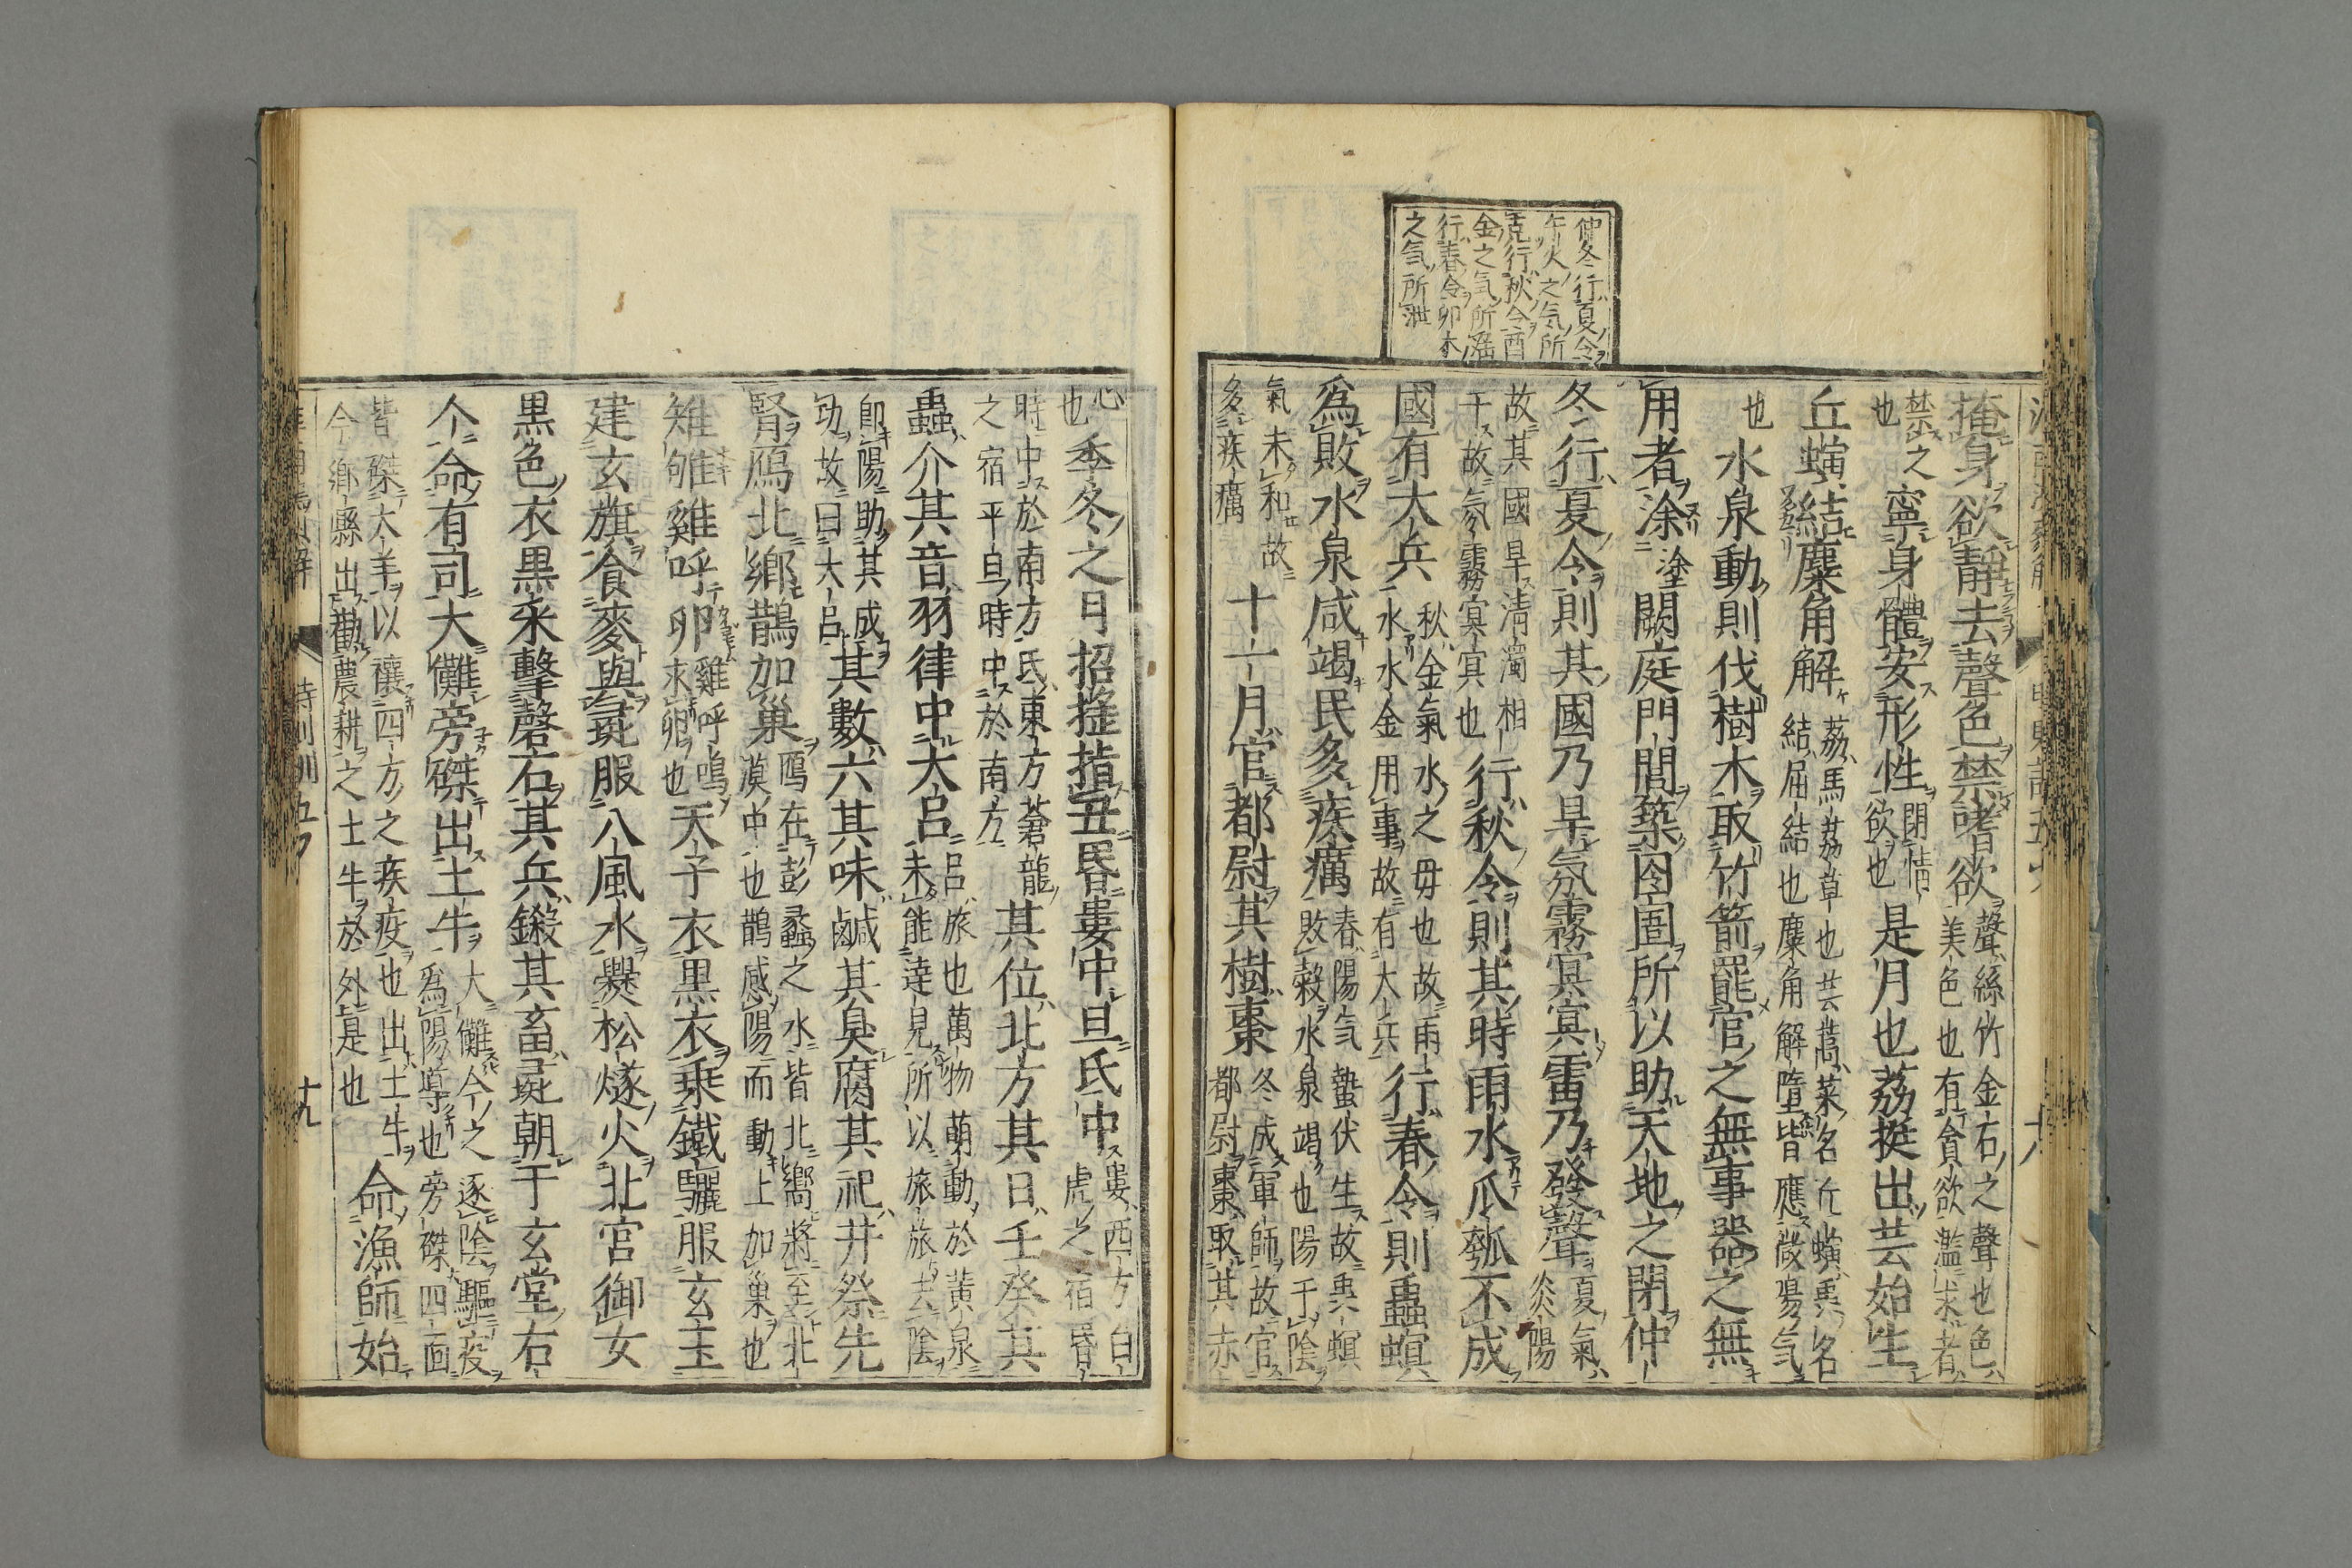 仲冬行夏令
午火之气所
克行秋令酉
金之気所滛
行春令卯木
之氣所泄
掩身欲靜去聲色禁嗜欲聲絲竹金石之聲也色
美色也有貪欲濫求者
禁之寧身體安形性閉情
也欲也是月也荔挺出芸始生
丘螾結麋角解荔馬荔草也芸蒿菜名丘螾蟲名
結屈結也麋角解墮皆應微陽氣
也水泉動則伐樹木取竹箭罷官之無事器之無
用者涂塗闕庭門閭築囹圄所以助天地之閉仲
冬行夏令則其國乃旱氛霧冥冥雷乃發聲夏氣
炎陽
故其國旱清濁相
干故氛霧冥冥也行秋令則其時雨水瓜瓠不成
國有大兵秋金氣水之毋也故雨
水水金用事故有大兵行春令則蟲螟
爲敗水泉咸竭民多疾癘春陽气蟄伏生故蟲螟
敗穀水泉竭也陽于陰
氣未和故
多疾癘十一月官都尉其樹棗冬成軍師故官
都尉棗取其赤
心
也季冬之月招搖指丑昏婁中旦氐中婁西方白
虎之宿昏
時中於南方氐東方蒼龍
之宿平旦時中於南方其位北方其日壬癸其
蟲介其音羽律中大呂呂旅也萬物萌動於黃泉
未能達見所以旅旅去陰
卽陽助其成
功故曰大呂其數六其味鹹其臭腐其祀井祭先
腎鴈北鄉鵲加巢鴈在彭蠡之水皆北嚮將至北
漠中也鵲感陽而動上加巢也
雉雊雞呼卵雞呼鳴
求卵也天子衣黒衣乗鐵驪服玄玉
建玄旗食麥與彘服八風水爨松燧火北宮御女
黒色衣黒采擊磬石其兵鎩其畜彘朝于玄堂右
个命有司大儺旁磔出土牛大儺今之逐陰驅疫
爲陽導也旁磔四面
皆磔犬羊以禳四方之疾疫也出土牛
今鄉縣出勸農耕之土牛於外是也命漁師始
十九